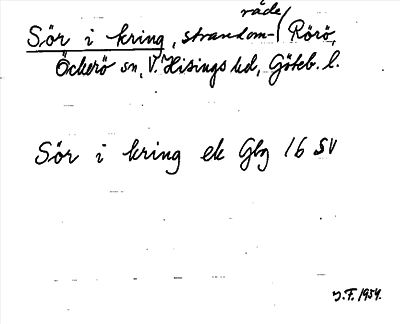 Sör i kring, strandområde/ Rörö,
Öckerö sn, V. Hisings hd, Göteb. l.
Sör i kring ek Gbg 16 SV
J.F. 1954.